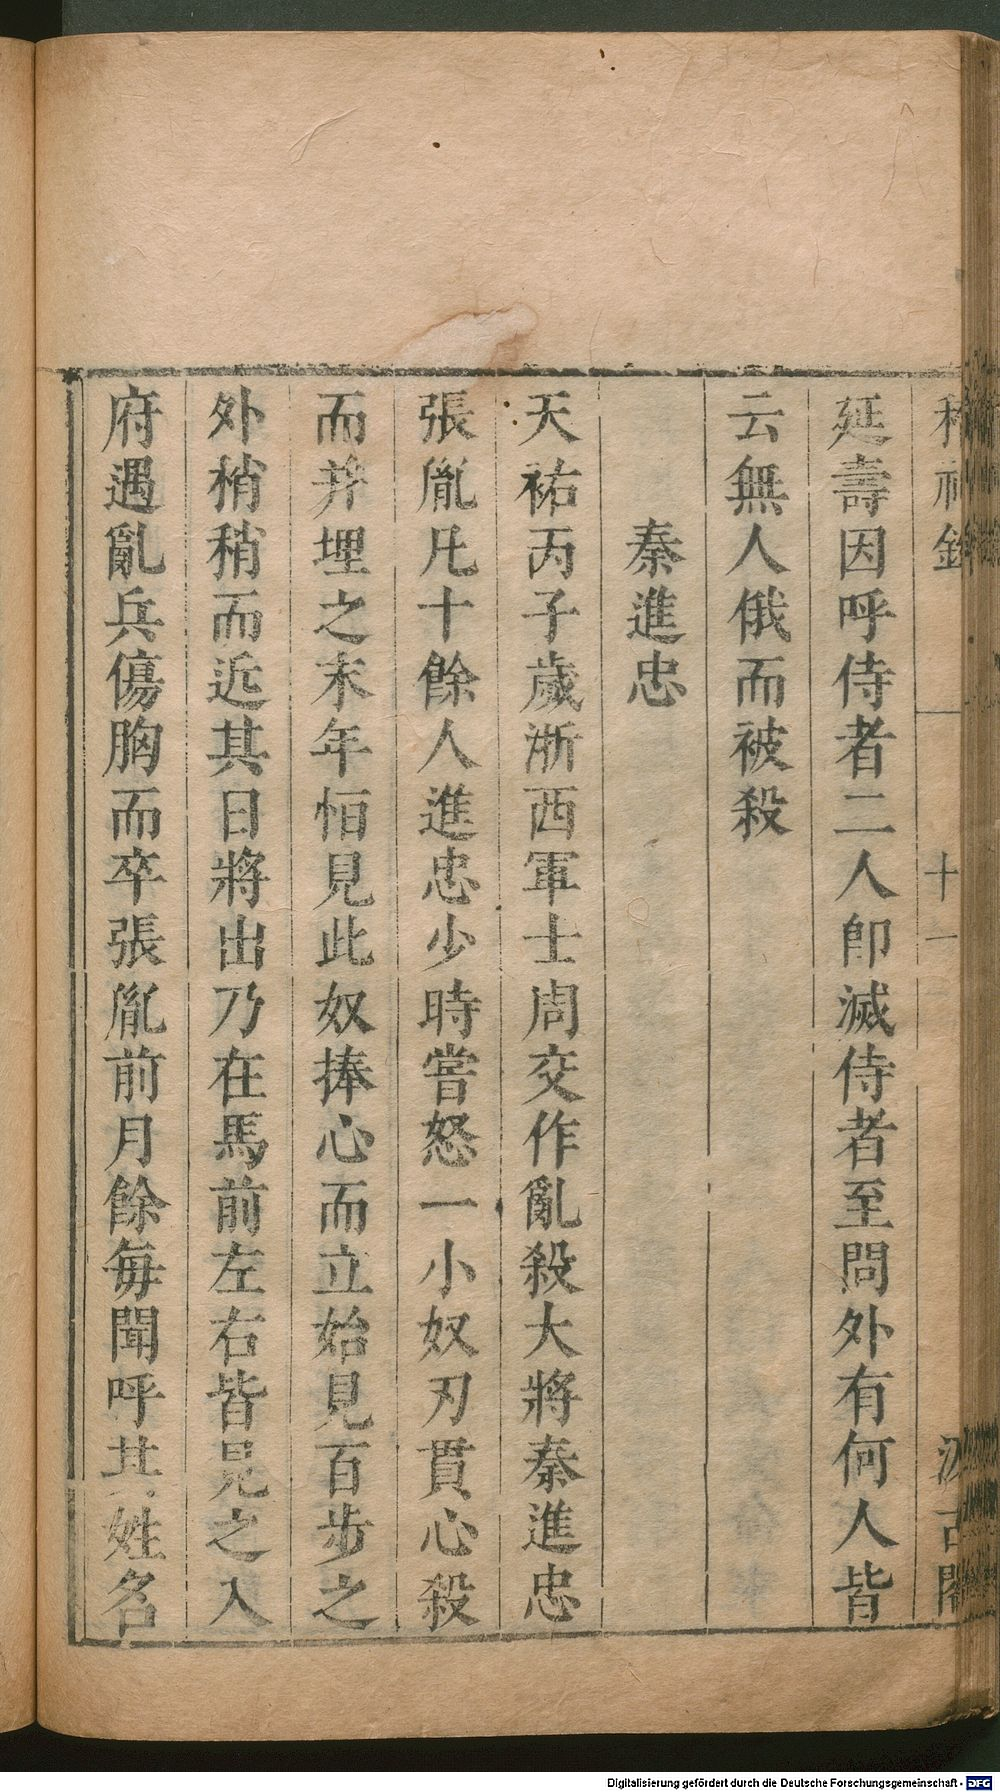 延壽因呼侍者二人卽滅侍者至問外有何人皆
云無人俄而被殺
秦進忠
天祐丙子歲浙西軍士周交作亂殺大將秦進忠
張胤凡十餘人進忠少時嘗怒一小奴刃貫心殺
而并埋之末年恒見此奴捧心而立始見百步之
外稍稍而近其日將出乃在馬前左右皆見之入
府遇亂兵傷胸而卒張胤前月餘每聞呼其姓名
十一
Digitalisierung gefördert durch die Deutsche Forschungsgemeinschaft - DFG